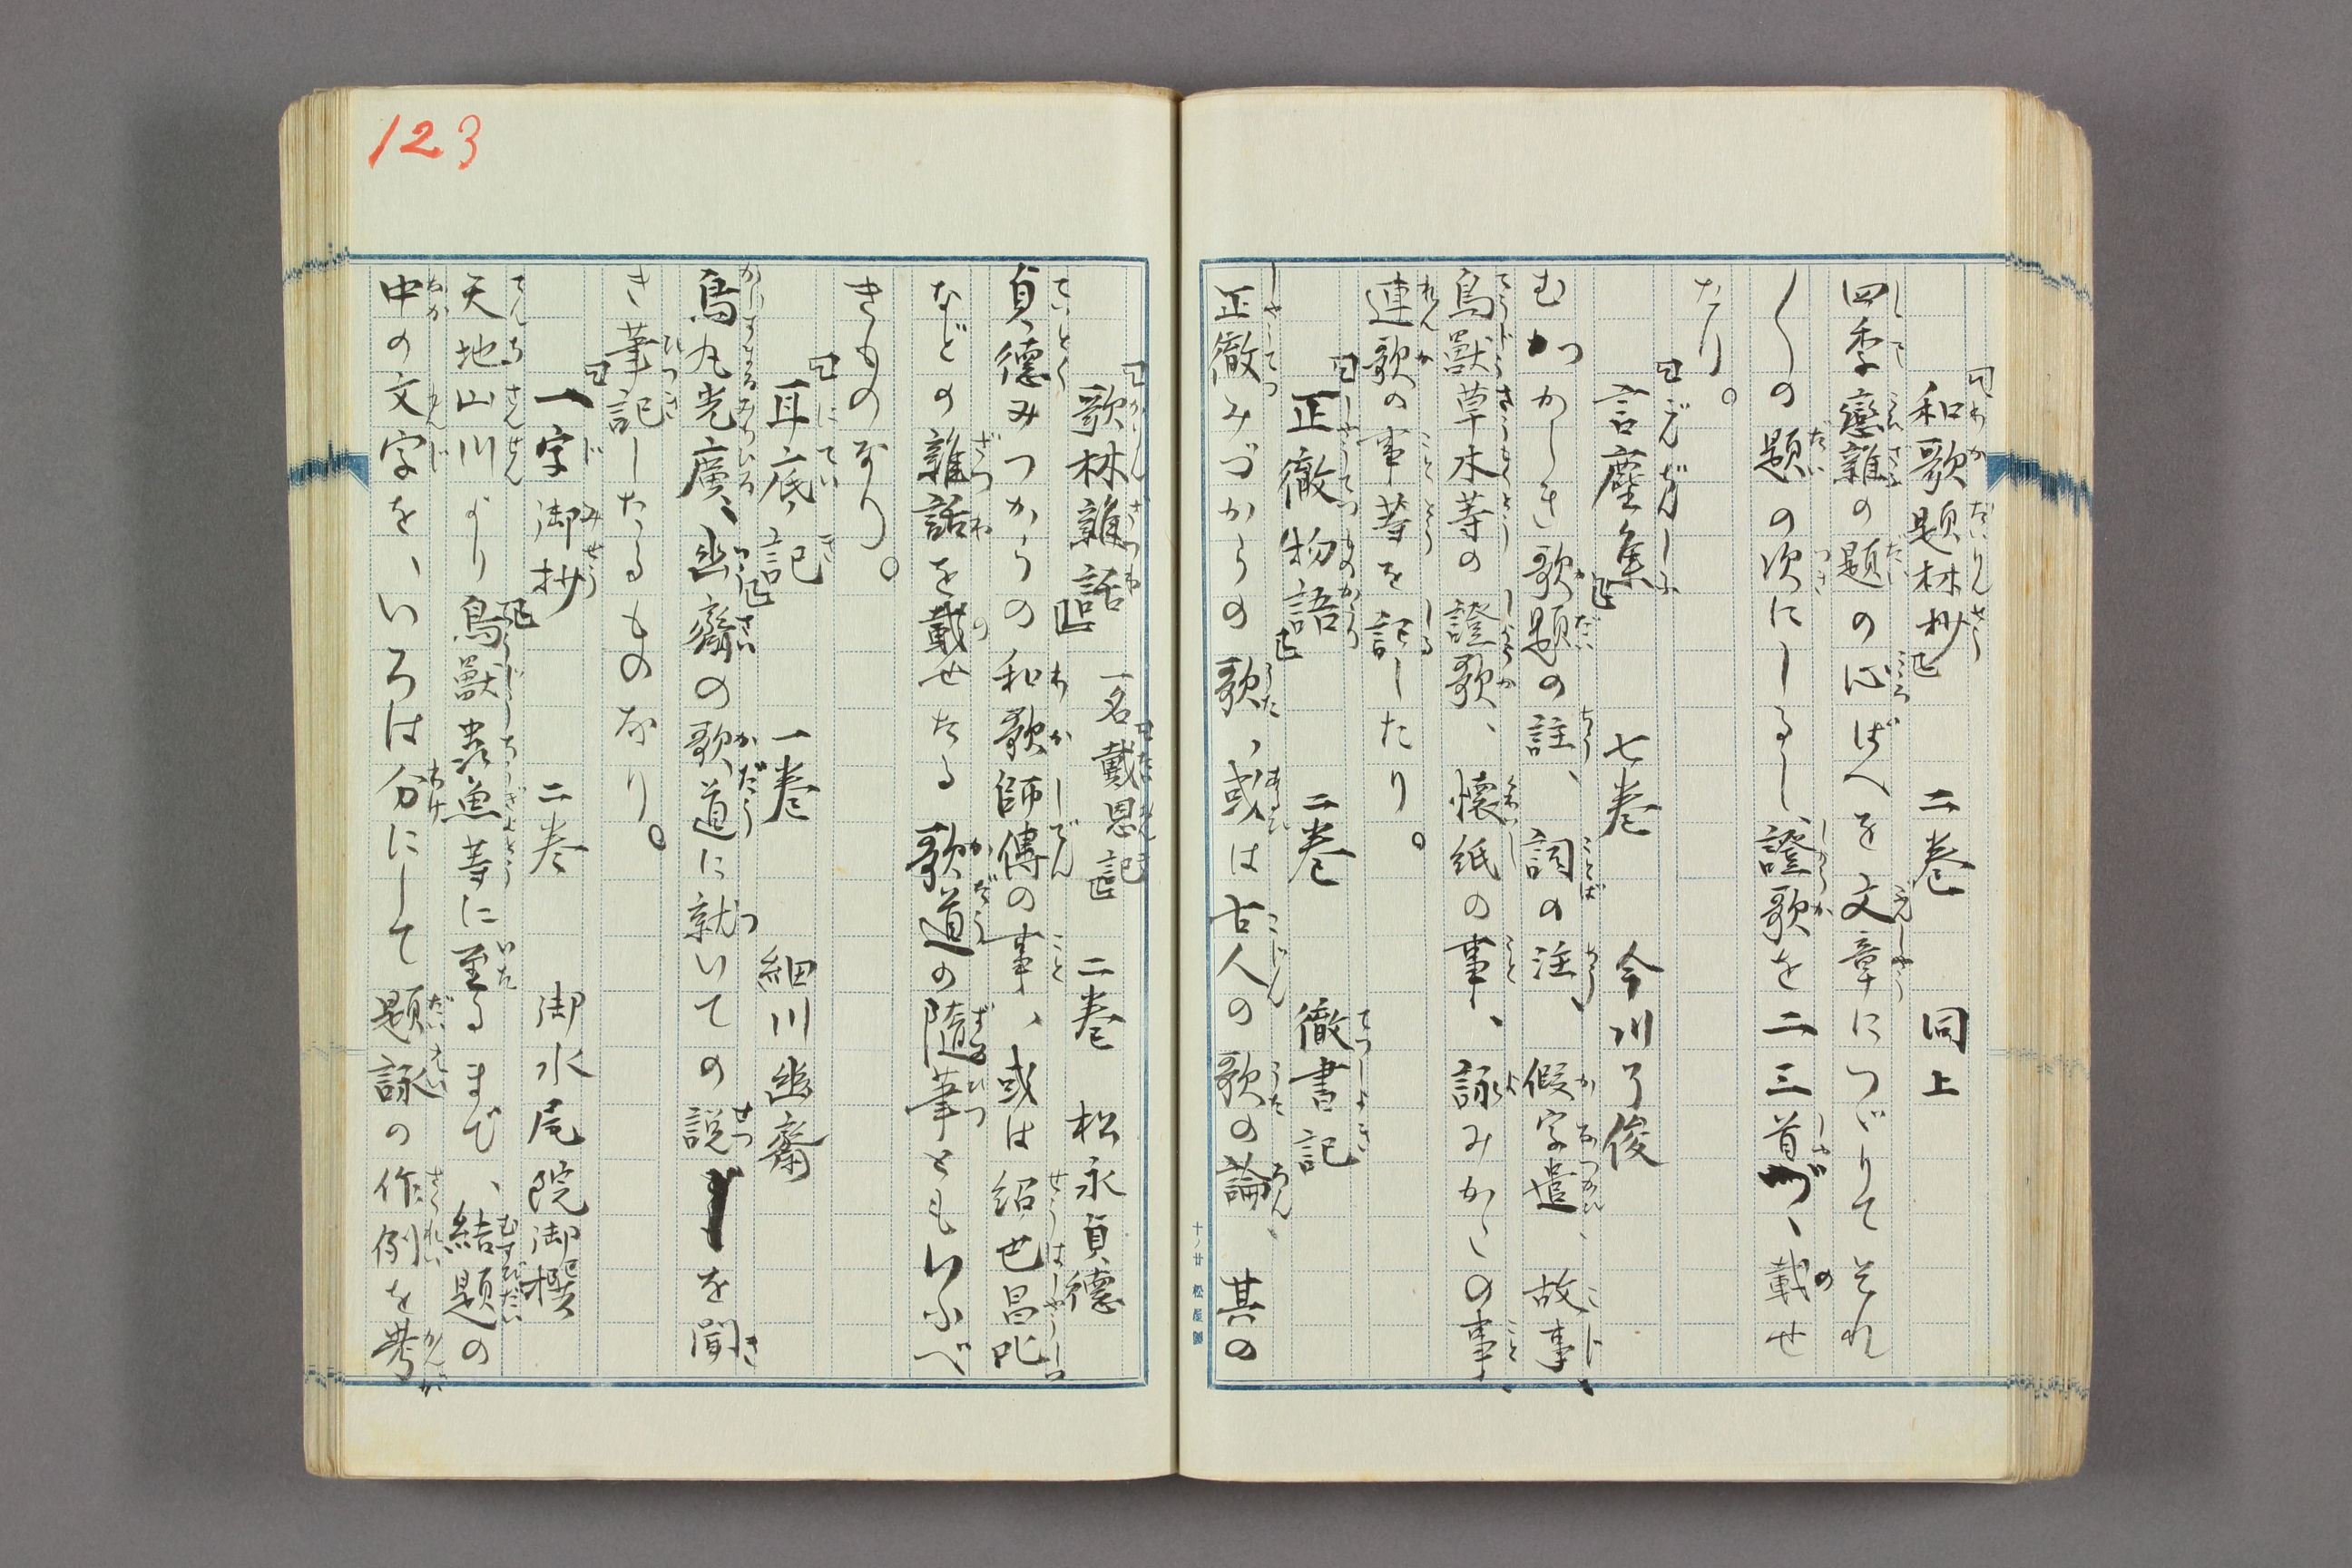 和歌題林抄 二巻 同上
四季戀雜の題の心ばへを文章につゞりてそれ
〳〵の題の次にしるし、證歌を二三首づゝ載せ
たり。
言塵集 七巻 今川了俊
むつかしき歌題の註、詞の注、假字遣、故事、
鳥獸草木等の證歌、懷紙の事、詠みかたの事、
連歌の事等を記したり。
正徹物語 二巻 徹書記
正徹みづからの歌、或は古人の歌の論、其の
十ノ廿 松屋製
歌林雜話 一名戴恩記 二巻 松永貞德
貞德みづからの和歌師傳の事、或は紹巴昌叱
などの雜話を載せたる歌道の隨筆ともいふべ
きものなり。
耳底記 一巻 細川幽齋
烏丸光廣、幽齋の歌道に就いての説を聞
き筆記したるものなり。
一字御抄 二巻 御水尾院御撰
天地山川より鳥獸蟲魚等に至るまで、結題の
中の文字を、いろは分にして題詠の作例を考
123